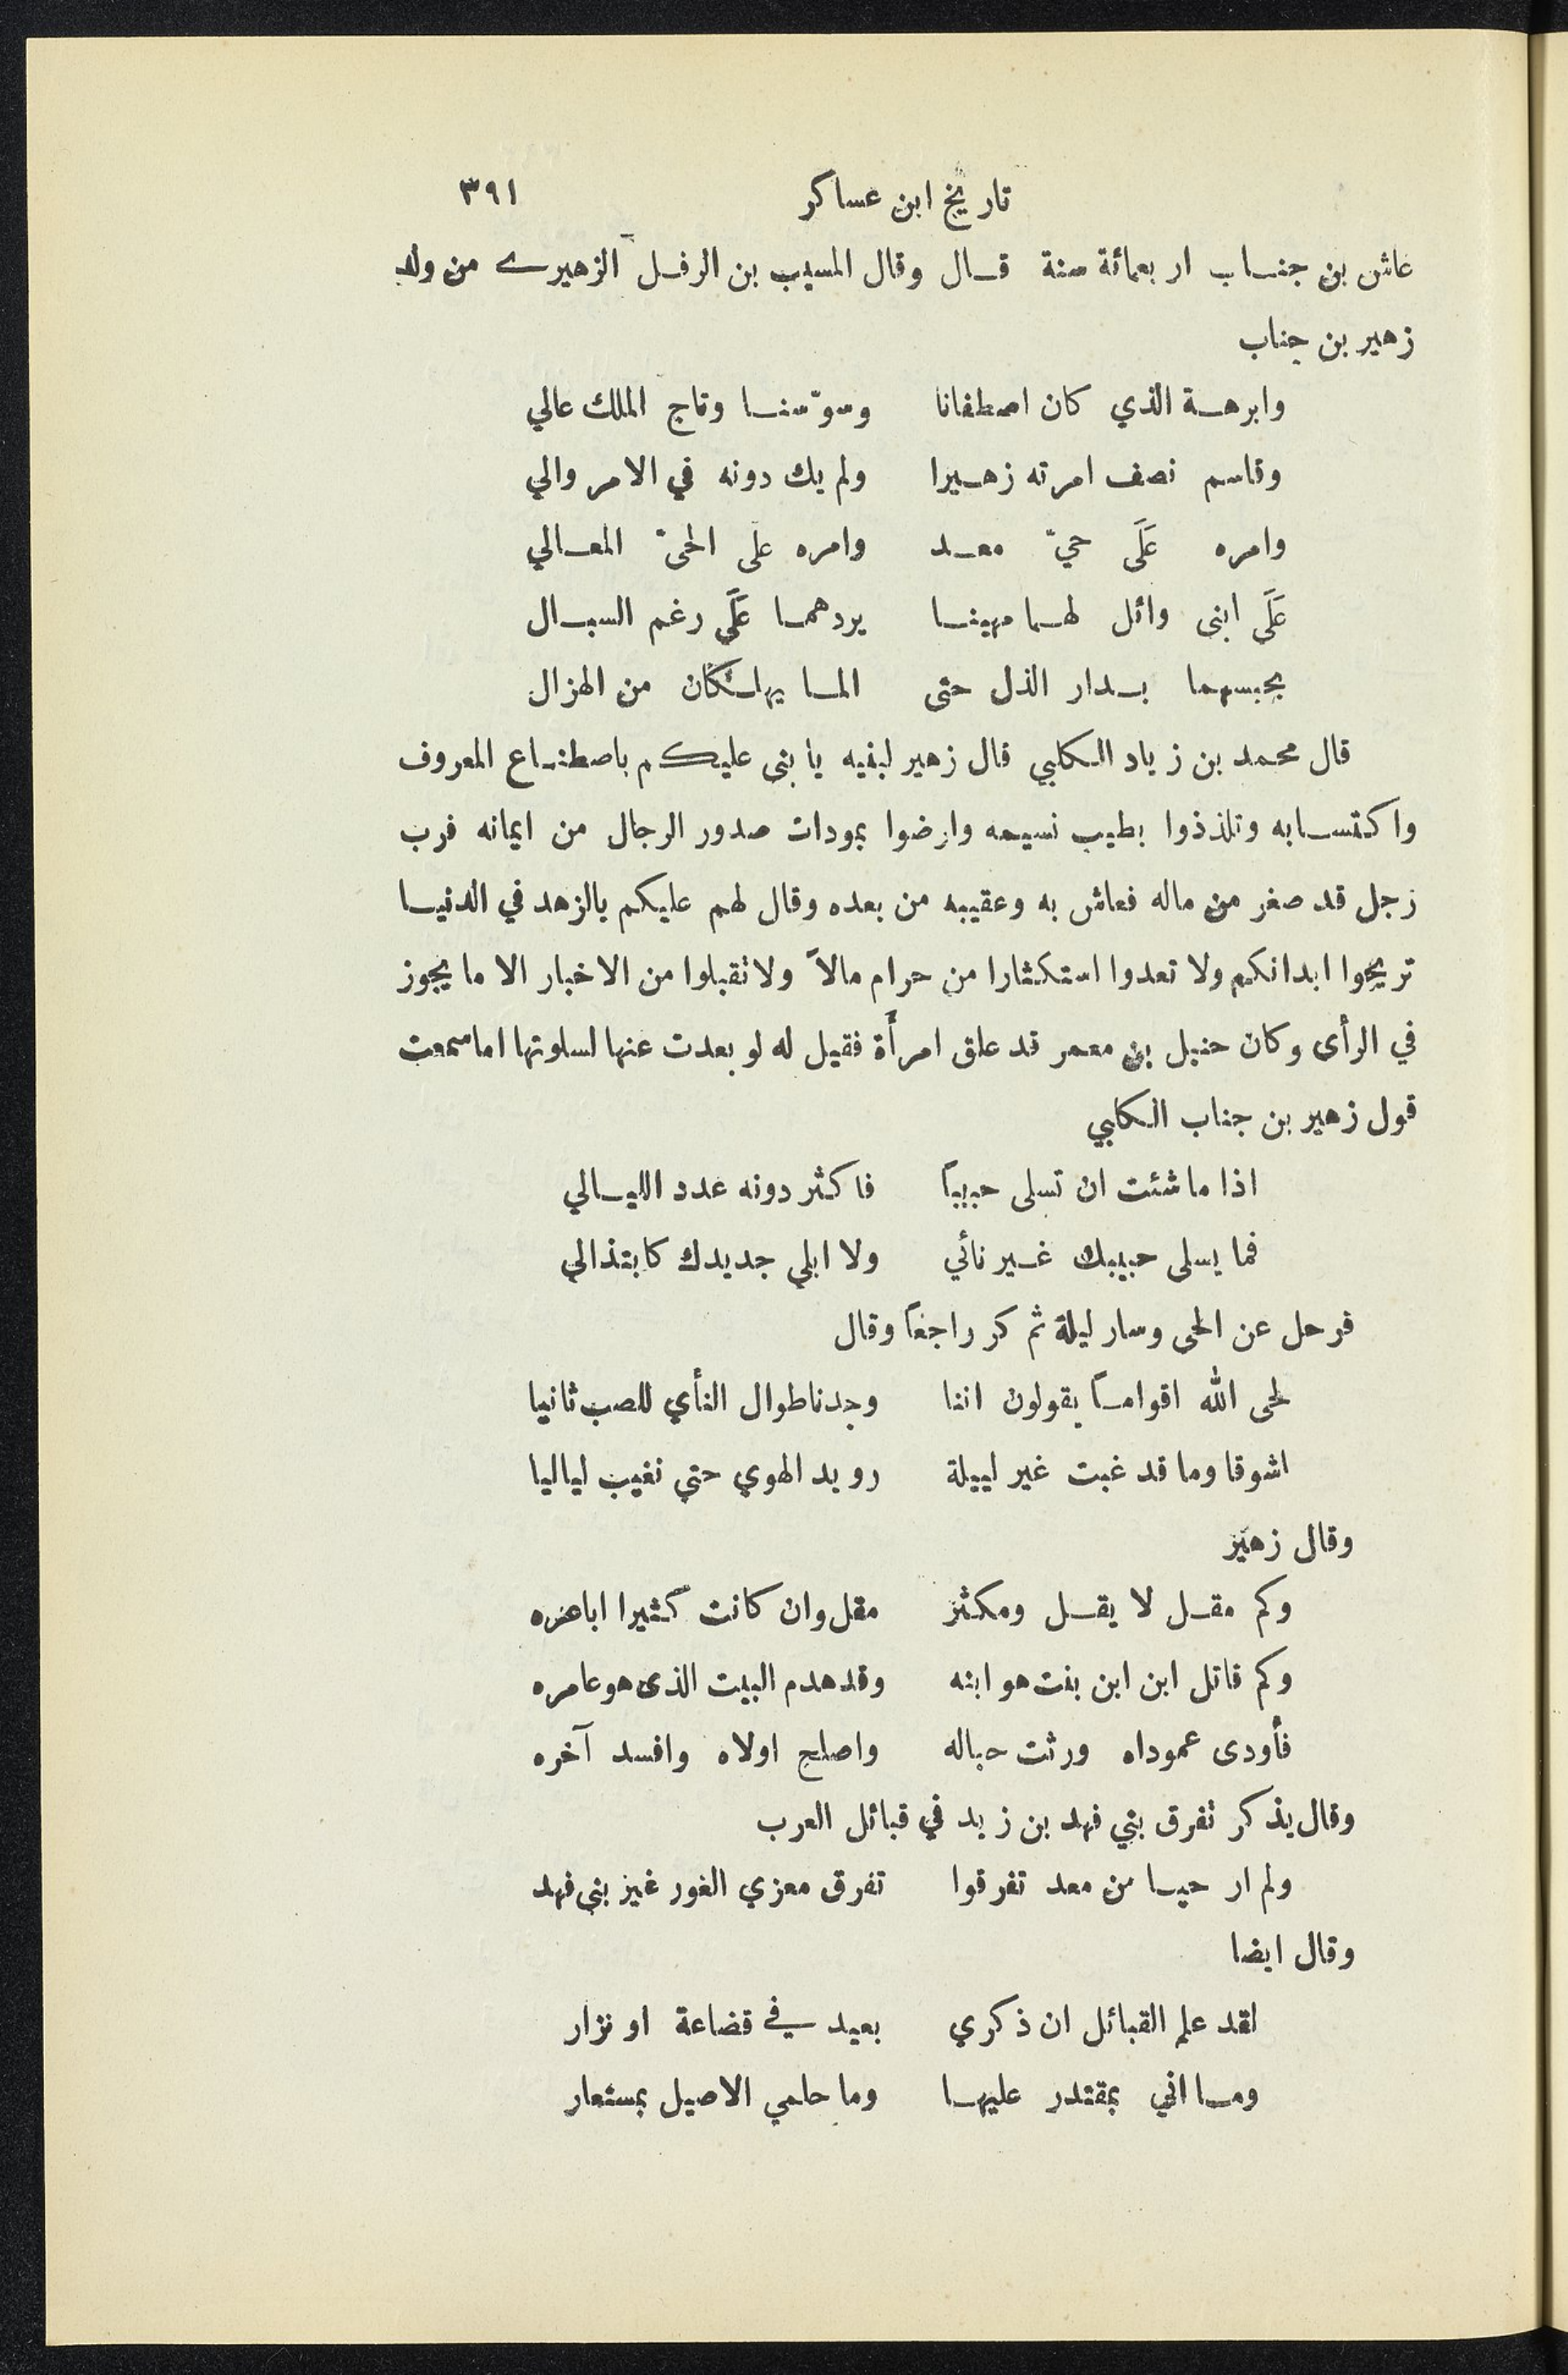 تاريخ ابن عساكر ٣٩١
عاش بن جناب اربعمائة سنة قال وقال المسيب بن الرفل الزهيرے من ولد
زهير بن جناب
وابرهة الذي كان اصطفانا وسوّسنا وتاج الملك عالي
وقاسم نصف امرته زهيرا ولم يك دونه في الامر والي
وامره عَلَى حيّ معد وامره على الحيّ المعالي
عَلَى ابنى وائل لهما مهينا يردهما عَلَى رغم السبال
يحبسهما بدار الذل حتى الما يهلكان من الهزال
قال محمد بن زياد الكلبي قال زهير لبنيه يا بنى عليكم باصطناع المعروف
واكتسابه وتلذذوا بطيب نسيمه وارضوا بمودات صدور الرجال من ايمانه فرب
زجل قد صغر من ماله فعاش به وعقيبه من بعده وقال لهم عليكم بالزهد في الدنيا
تريحوا ابدانكم ولا تعدوا استكثارا من حرام مالاً ولا تقبلوا من الاخبار الا ما يجوز
في الرأى وكان حنبل بن معمر قد علق امرأة فقيل له لو بعدت عنها لسلوتها اما سمعت
قول زهير بن جناب الكلبي
اذا ما شئت ان تسلى حبيباً فاكثر دونه عدد الليالي
فما يسلى حبيبك غير نائي ولا ابلي جديدك كابتذالي
فرحل عن الحى وسار ليلة ثم كر راجعاً وقال
لحى الله اقواماً يقولون اننا وجدنا طوال النأي للصب ثانيا
اشوقا وما قد غبت غير لييلة رويد الهوي حتي نغيب لياليا
وقال زهير
وكم مقل لا يقل ومكثر مقل وان كانت كثيرا اباعره
وكم قاتل ابن ابن بنت هو ابنه وقد هدم البيت الذى هو عامره
فأودى عموداه ورثت حباله واصلح اولاه وافسد آخره
وقال يذكر تفرق بني فهد بن زيد في قبائل العرب
ولم ار حيا من معد تفرقوا تفرق معزي الغور غير بني فهد
وقال ايضا
لقد علم القبائل ان ذكري بعيد في قضاعة او نزار
وما اني بمقتدر عليها وما حلمي الاصيل بمستعار